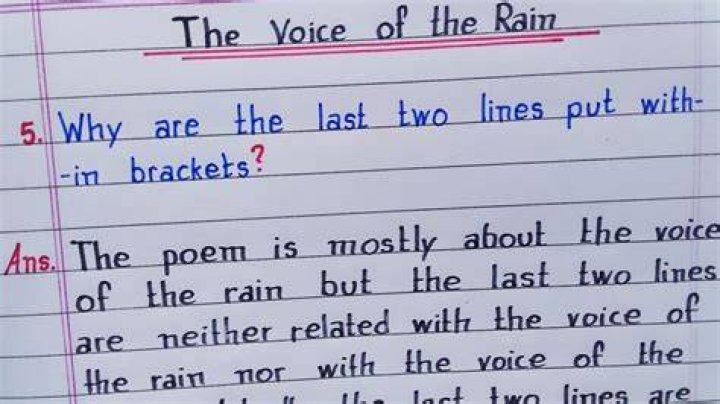 The Voice of the Rain
5. Why are the last two lines put with-
-in brackets?
Ans. The poem is mostly about the voice
of the rain but the last two lines
are neither related with the voice of
the rain nor with the voice of the
the last two lines are